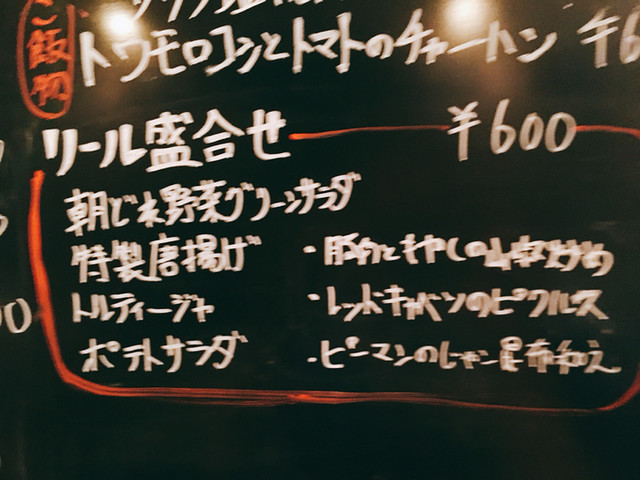 ご飯物
トウモロコシとトマトのチャーハン ¥6
リール盛合せ ¥600
朝どれ野菜グリーンサラダ
特製唐揚げ
・豚肉ともやしの山椒炒め
トルティージャ
・レッドキャベツのピクルス
ポテトサラダ
・ピーマンのじゃこ昆布和え